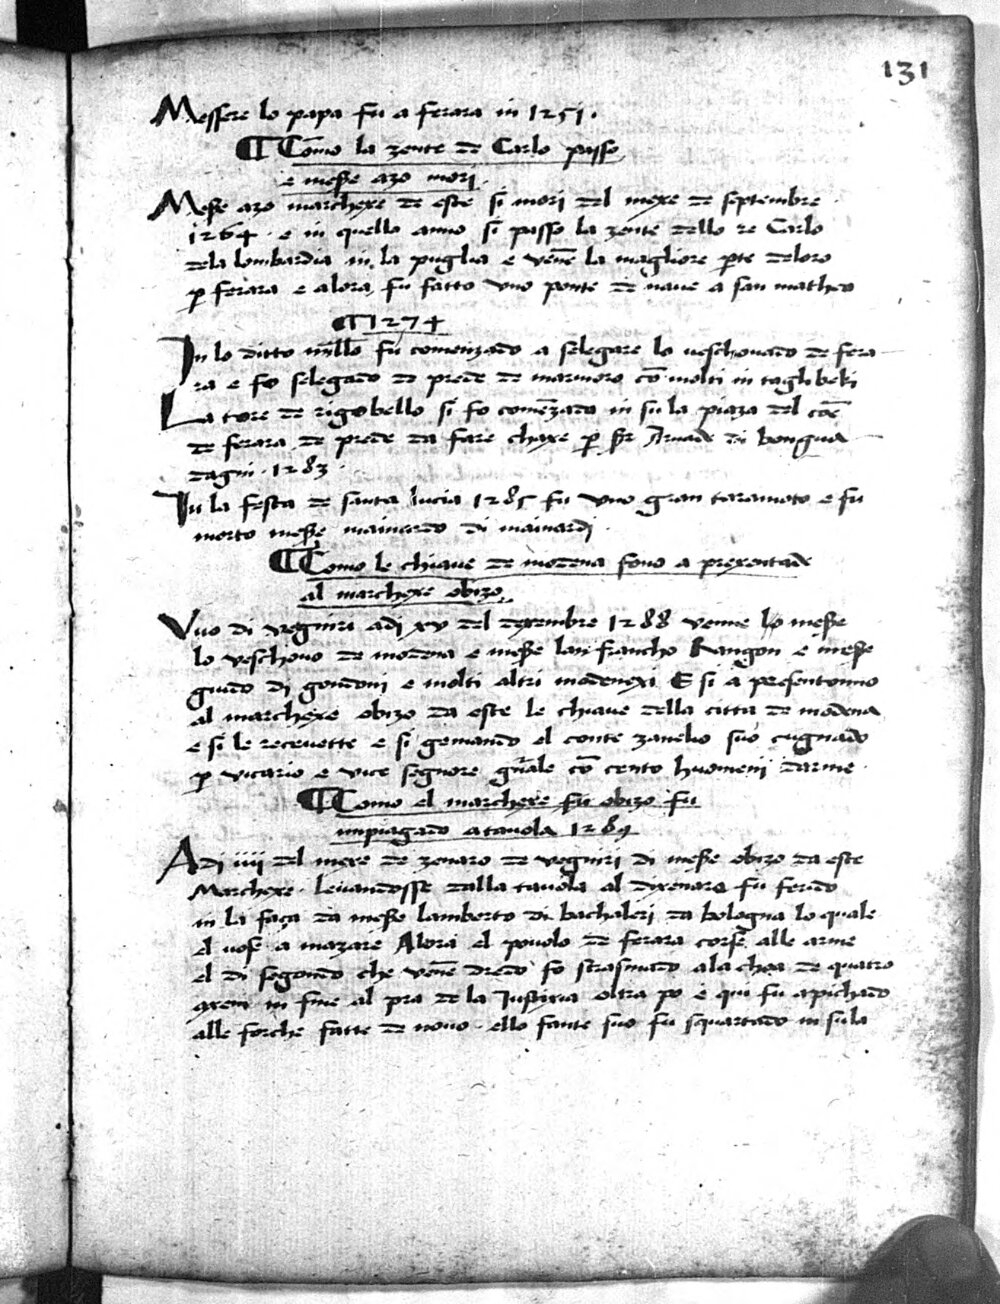 131
Messere lo papa fu a ferara in 1251.
¶ Como la zente de Carlo passo
e messe azo mori.
Messe azo marchexe de este si mori del mexe de septembre
1264. e in quello anno si passo la zente dello re Carlo
dela lombardia in la puglia e vene la magliore pte deloro
p ferara e alora fu fatto uno ponte de nave a san matheo
¶ 1274
In lo ditto millo fu comenzado a selegare lo veschovado de fera
ra e fo selegado de prede de marmoro co molti intagli beli
La tore de rigobello si fo comezada in su la piaza del coe
de ferara de prede da fare chaxe p ser Amade di bongua
dagni. 1283.
In la festa de santa lucia 1285 fu uno gran taramoto e fu
morto messe mainardo di mainardi.
¶ Como le chiave de modena fono a prexentade
al marchexe obizo.
Uno di vegniri adi xv del dexembre 1288 venne lo messe
lo veschovo de modena e messe lanfrancho Rangon e messe
guido di gondoni e molti altri modenexi E si a presentonno
al marchexe obizo da este le chiave della citta de modena
e si le recevette e si gemando el conte zanelio suo cugnado
p vicario e vice segnore gnale co cento huomeni darme.
¶ Como el marchexe fu obizo fu
impiagado a tavola 1289
Adi iiii del mexe de zenaro de vegniri di messe obizo da este
Marchexe. levandosse dalla tavola al dixenare fu ferido
in la faça da messe lamberto di bachaleri da bologna lo quale
el vose a mazare Alora el povolo de ferara corse alle arme
el di segondo che vene dredo fo strasinado ala choa de quatro
axeni in fine al pra de la Justixia oltra po e qui fu apichado
alle forche fatte de novo. ello fante suo fu squartado in sula